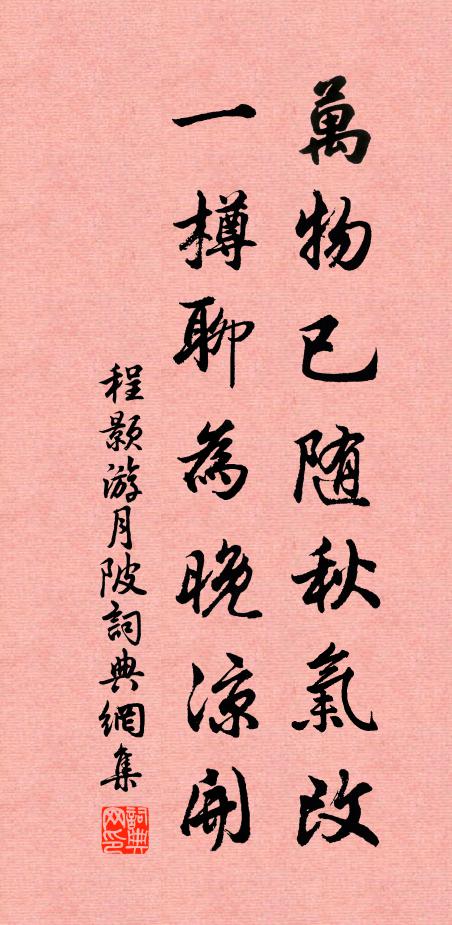 萬物已随秋氣改
一樽聊為晚凉開
程顥游月陂詞典網集
詞典网印